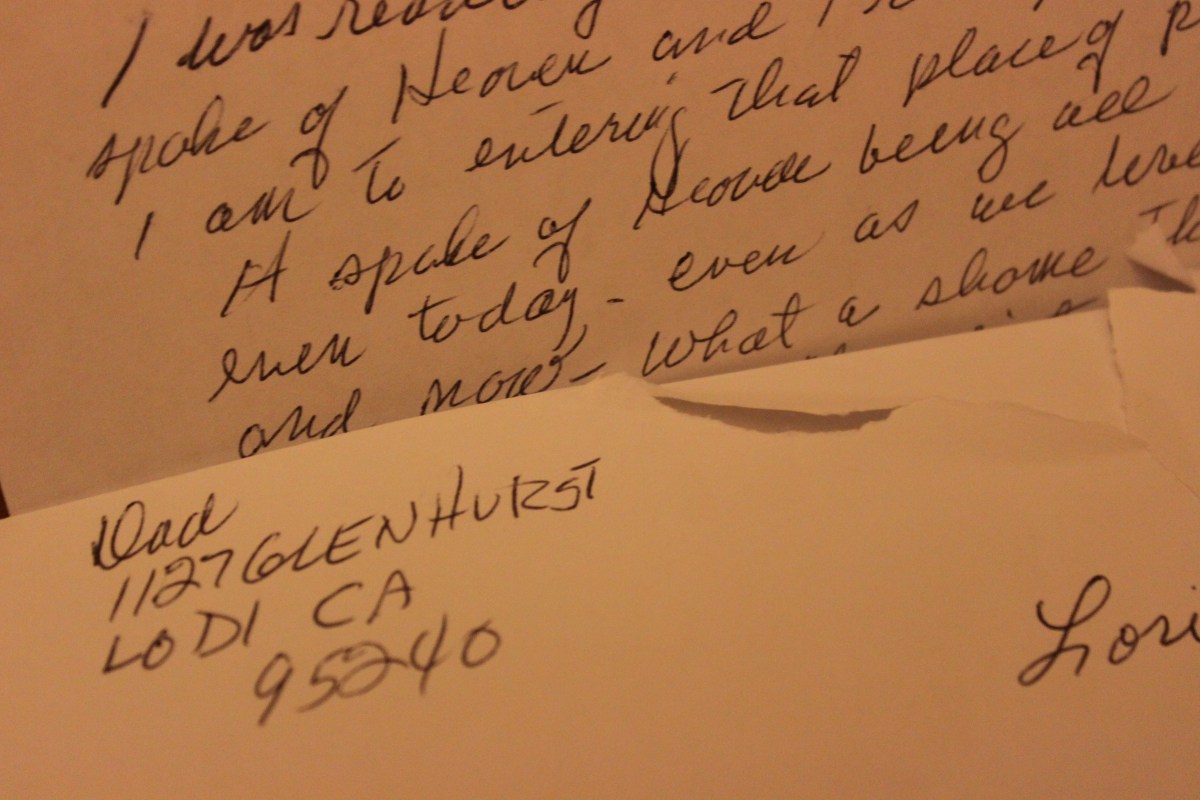 I was
spoke of Heaven and I
I am to entering that place of
It spoke of Heaven being all
even today - even as we
and now - What a shame
Dad
1127 GLENHURST
LODI CA
95240
Lori